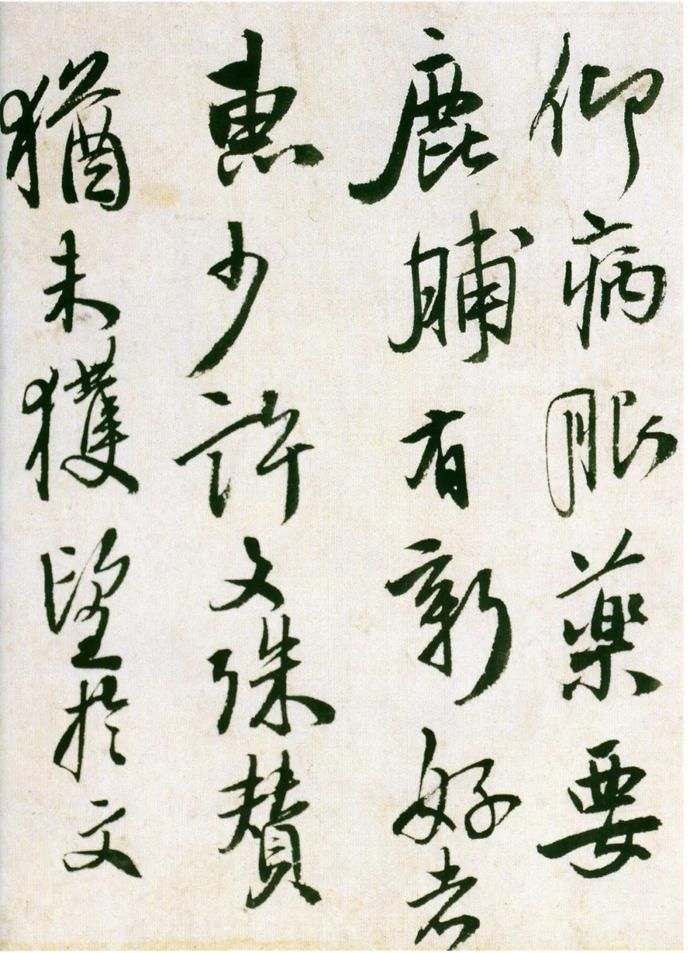 仰病眼藥要
鹿脯有新好者
惠少許文殊賛
猶未獲望於文